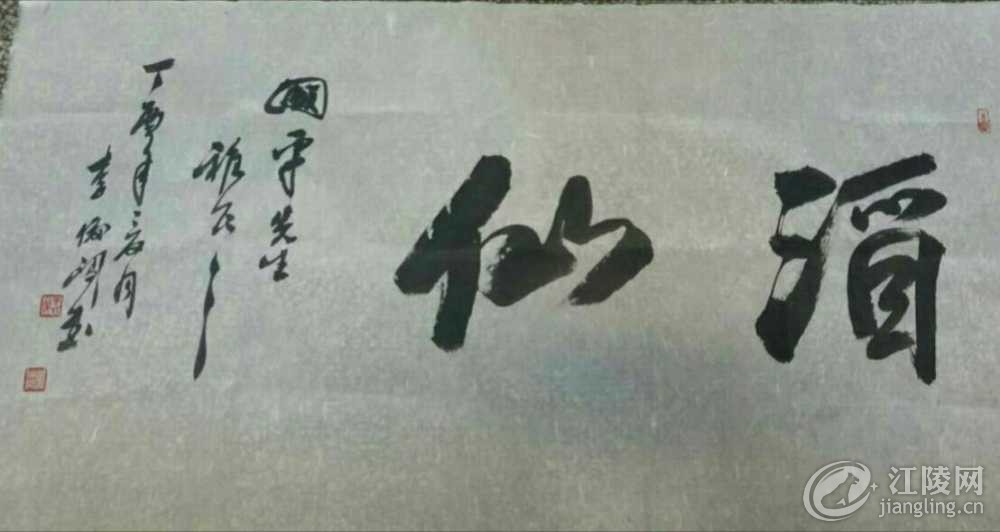 酒仙
國平先生
雅正
丁酉年三月
李
江陵网
jiangling.cn